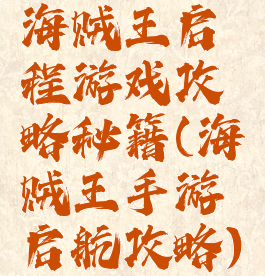 海贼王启
程游戏攻
略秘籍(海
贼王手游
启航攻略)